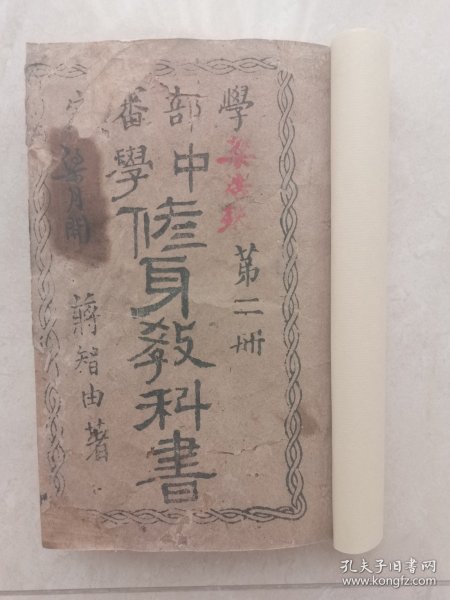 學部審定
中學修身教科書
第二冊
蔣智由著
孔夫子旧书网
www.kongfz.com